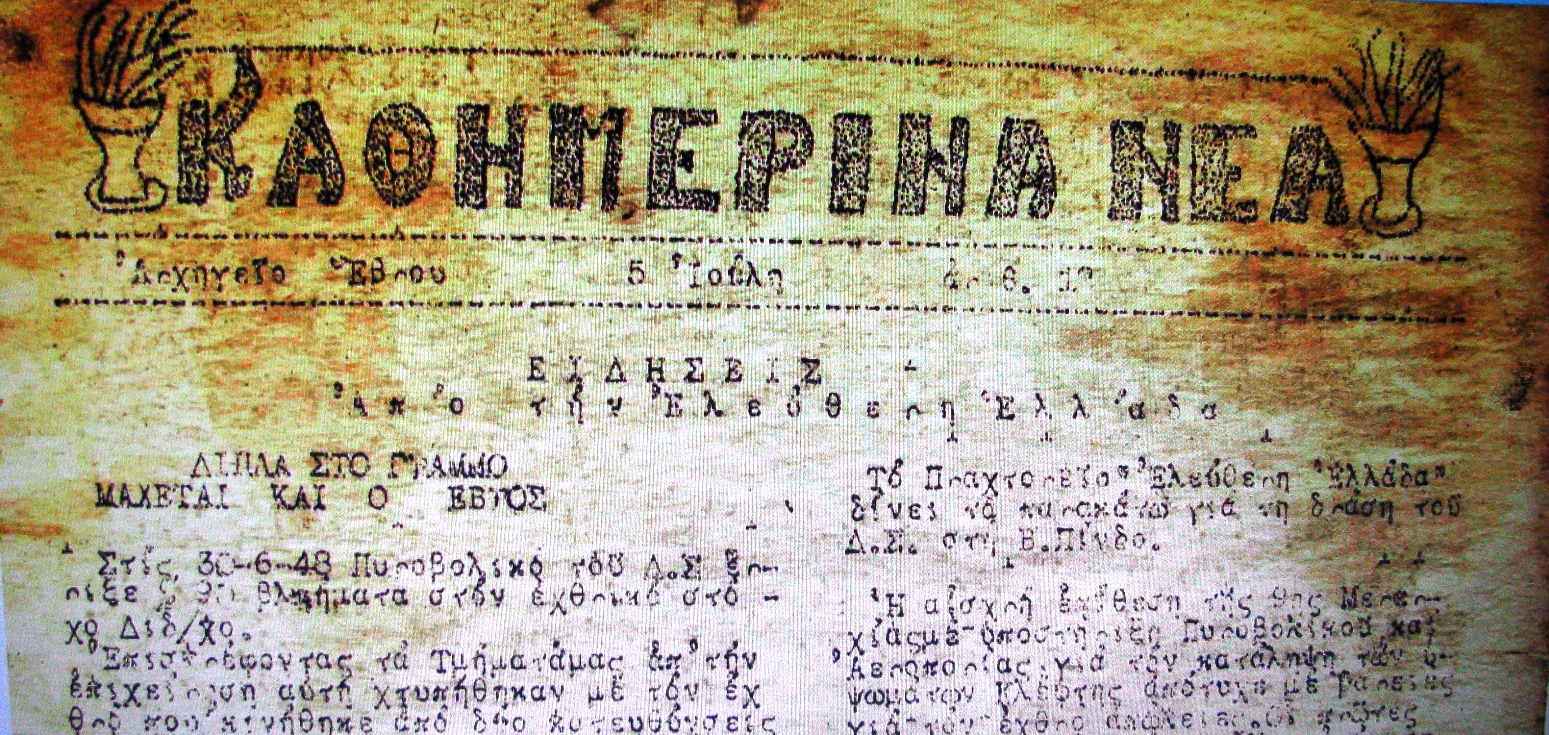 ΚΑΘΗΜΕΡΙΝΑ ΝΕΑ
Ἀρχηγεῖο Ἕβρου 5 Ἰούλη ἀριθ.
ΕΙΔΗΣΕΙΣ
Ἀπὸ τὴν Ἐλεύθερη Ἑλλάδα
ΔΙΠΛΑ ΣΤΟ ΓΡΑΜΜΟ
ΜΑΧΕΤΑΙ ΚΑΙ Ο ΕΒΡΟΣ
Στίς 30-6-48 Πυροβολικό τοῦ Δ.Σ ἔρ-
ριξε βλήματα στόν ἐχθρικό στό-
χο Διδ/χο.
Ἐπιστρέφοντας τά Τμήματάμας ἀπ' τήν
ἐπιχείρηση αὐτή χτυπήθηκαν μέ τόν ἐχ
θρό πού κινήθηκε ἀπό δύο κατευθύνσεις
Τό Πραχτορεῖο "Ἐλεύθερη Ἑλλάδα"
δίνει τά παρακάτω γιά τή δράση τοῦ
Δ.Σ. στή Β.Πίνδο.
Ἡ αἰσχρή ἐπίθεση τῆς 9ης Μεραρ-
χίαςμέ ὑποστήριξη Πυροβολικοῦ καί
Ἀεροπορίας γιά τόν κατάληψη τῶν ὑ-
ψωμάτων Κλέφτης ἀπότυχε μέ βαρειές
γιά τόν ἐχθρό ἀπώλειες. Οἱ πρῶτες